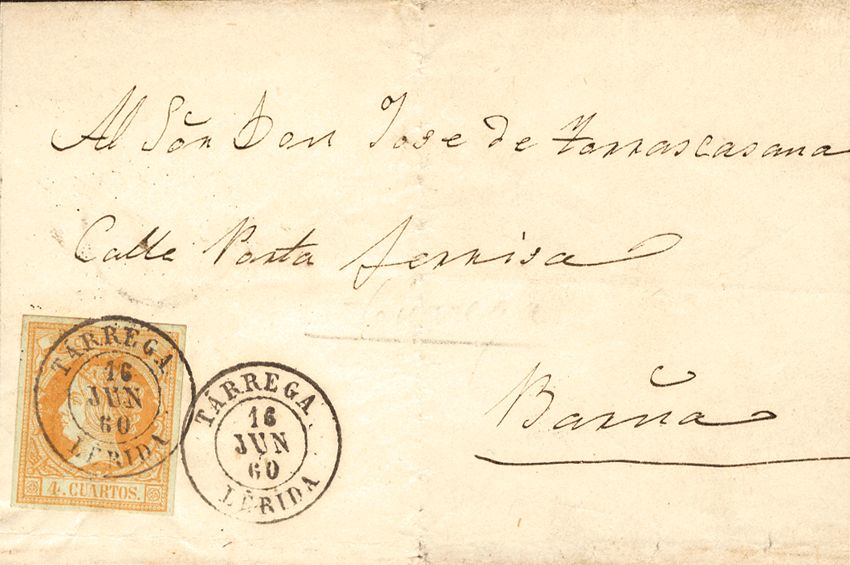 Al Sõr Don Jose de Tarrascasana
Calle Porta ferrisa
Barña
TÁRREGA
16
JUN
60
LÉRIDA
4. CUARTOS.
TÁRREGA.
16
JUN
60
LÉRIDA